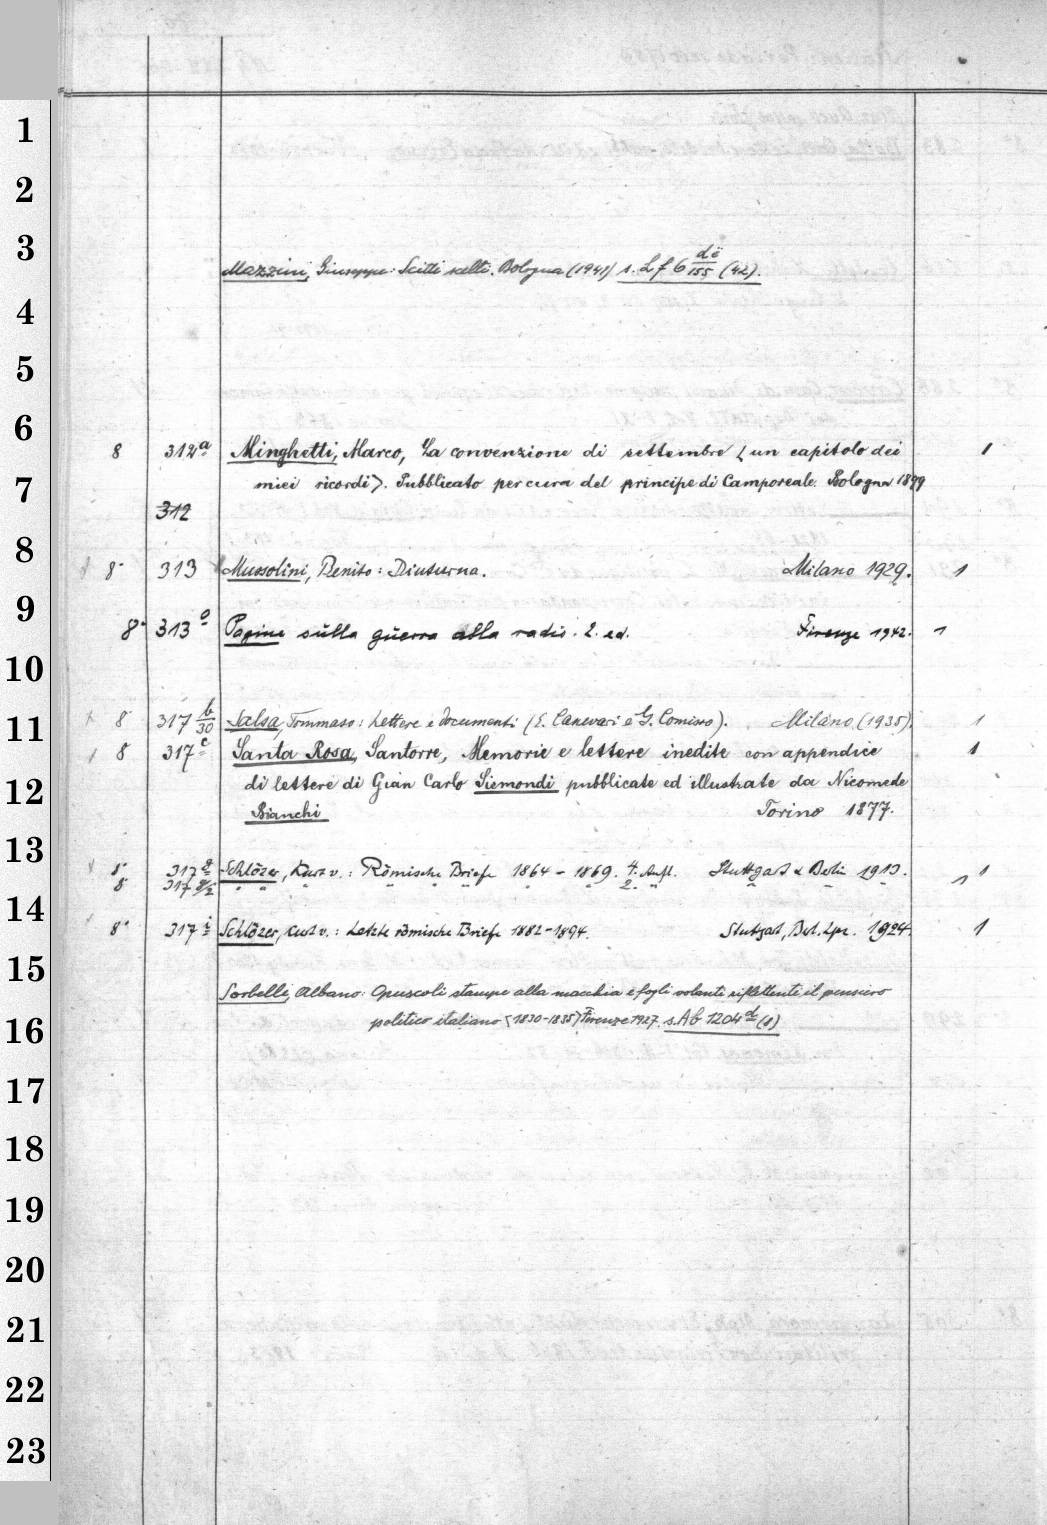 1
2
3
Mazzini, Giuseppe: Scitti scelti. Bologna (1941) s. Lf 6 di/155 (42).
4
5
6
8 312a Minghetti, Marco, La convenzione di settembre <un capitolo dei 1
7
miei ricordi>. Pubblicato per cura del principe di Camporeale. Bologna 1899
312
8
8° 313 Mussolini, Benito: Diuturna. Milano 1929. 1
9
8° 313 e Pagine sulla guerra alla radio. 2. ed. Firenze 1942. 1
10
11
8 317 b/30 Salsa, Tommaso: Lettere e documenti (E. Canevari e G. Comisso). Milano (1935). 1
8 317c Santa Rosa, Santorre, Memorie e lettere inedite con appendice 1
12
di lettere di Gian Carlo Sismondi pubblicate ed illustrate da Nicomede
Bianchi Torino 1877.
13
8° 317 g Schlözer, Kurt v.: Römische Briefe 1864-1869. 4. Aufl. Stuttgart & Berlin 1913. 1
8 317 g/2 " " " " " " 2. " " " 1
14
8° 317 i Schlözer, Kurt v.: Letzte römische Briefe 1882-1894. Stuttgart, Berl. Lpz. 1924. 1
15
Sorbelli, Albano: Opuscoli stampe alla macchia e fogli volanti riflettenti il pensiero
16
politico italiano <1830-1835> Firenze 1927. s. Ab 1204 d (8)
17
18
19
20
21
22
23